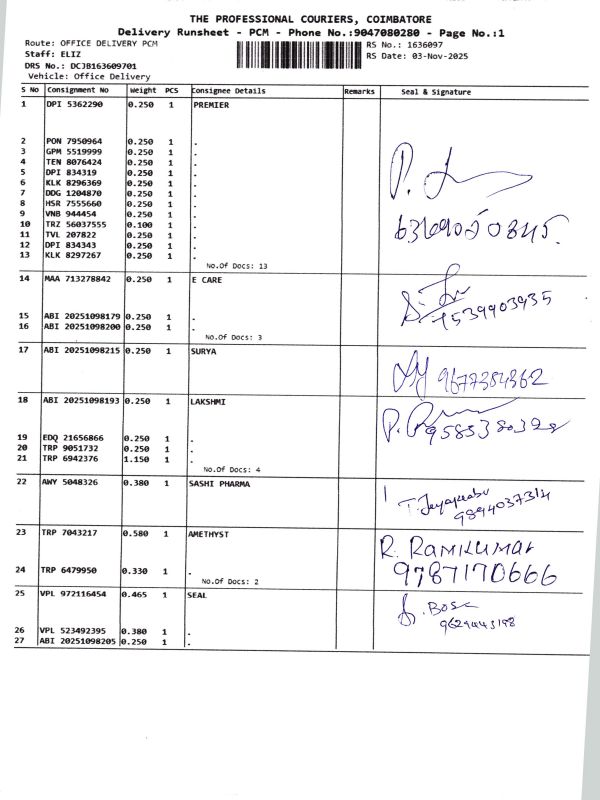 THE PROFESSIONAL COURIERS, COIMBATORE
Delivery Runsheet - PCM - Phone No.:9047080280 - Page No.:1
Route: OFFICE DELIVERY PCM RS No.: 1636097
Staff: ELIZ RS Date: 03-Nov-2025
DRS No.: DCJB163609701
Vehicle: Office Delivery
S No Consignment No Weight PCS Consignee Details Remarks Seal & Signature
1 DPI 5362290 0.250 1 PREMIER
2 PON 7950964 0.250 1 .
3 GPM 5519999 0.250 1 .
4 TEN 8076424 0.250 1 .
5 DPI 834319 0.250 1 .
6 KLK 8296369 0.250 1 .
7 DDG 1204870 0.250 1 .
8 HSR 7555660 0.250 1 .
9 VNB 944454 0.250 1 .
10 TRZ 56037555 0.100 1 .
11 TVL 207822 0.250 1 .
12 DPI 834343 0.250 1 .
13 KLK 8297267 0.250 1 .
No.Of Docs: 13
14 MAA 713278842 0.250 1 E CARE
15 ABI 20251098179 0.250 1 .
16 ABI 20251098200 0.250 1 .
No.Of Docs: 3
17 ABI 20251098215 0.250 1 SURYA
9677384362
18 ABI 20251098193 0.250 1 LAKSHMI
19 EDQ 21656866 0.250 1 .
20 TRP 9051732 0.250 1 .
21 TRP 6942376 1.150 1 .
No.Of Docs: 4
22 AWY 5048326 0.380 1 SASHI PHARMA
9894037314
23 TRP 7043217 0.580 1 AMETHYST
R. RAMKUMAR
24 TRP 6479950 0.330 1 .
9787170666
No.Of Docs: 2
25 VPL 972116454 0.465 1 SEAL
26 VPL 523492395 0.380 1 .
27 ABI 20251098205 0.250 1 .